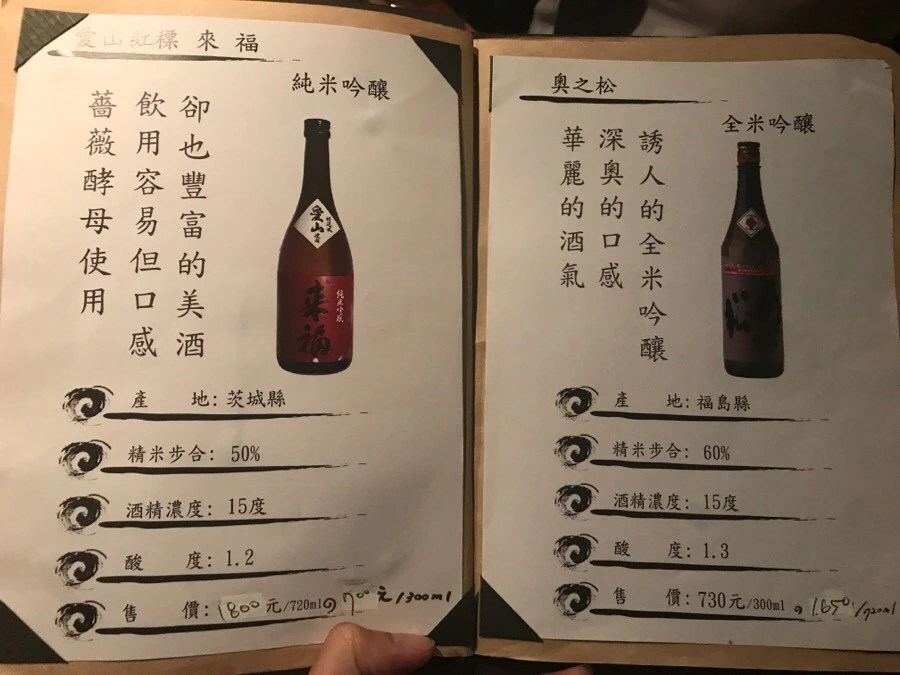 愛山紅標 來福
純米吟釀
薔薇酵母使用
飲用容易但口感
卻也豐富的美酒
愛山
純米吟釀
来福
產 地: 茨城縣
精米步合: 50%
酒精濃度: 15度
酸 度: 1.2
售 價: 1800元/720ml の 700元/300ml
奧之松
全米吟釀
誘人的全米吟釀
深奧的口感
華麗的酒氣
產 地: 福島縣
精米步合: 60%
酒精濃度: 15度
酸 度: 1.3
售 價: 730元/300ml の 1650/720ml